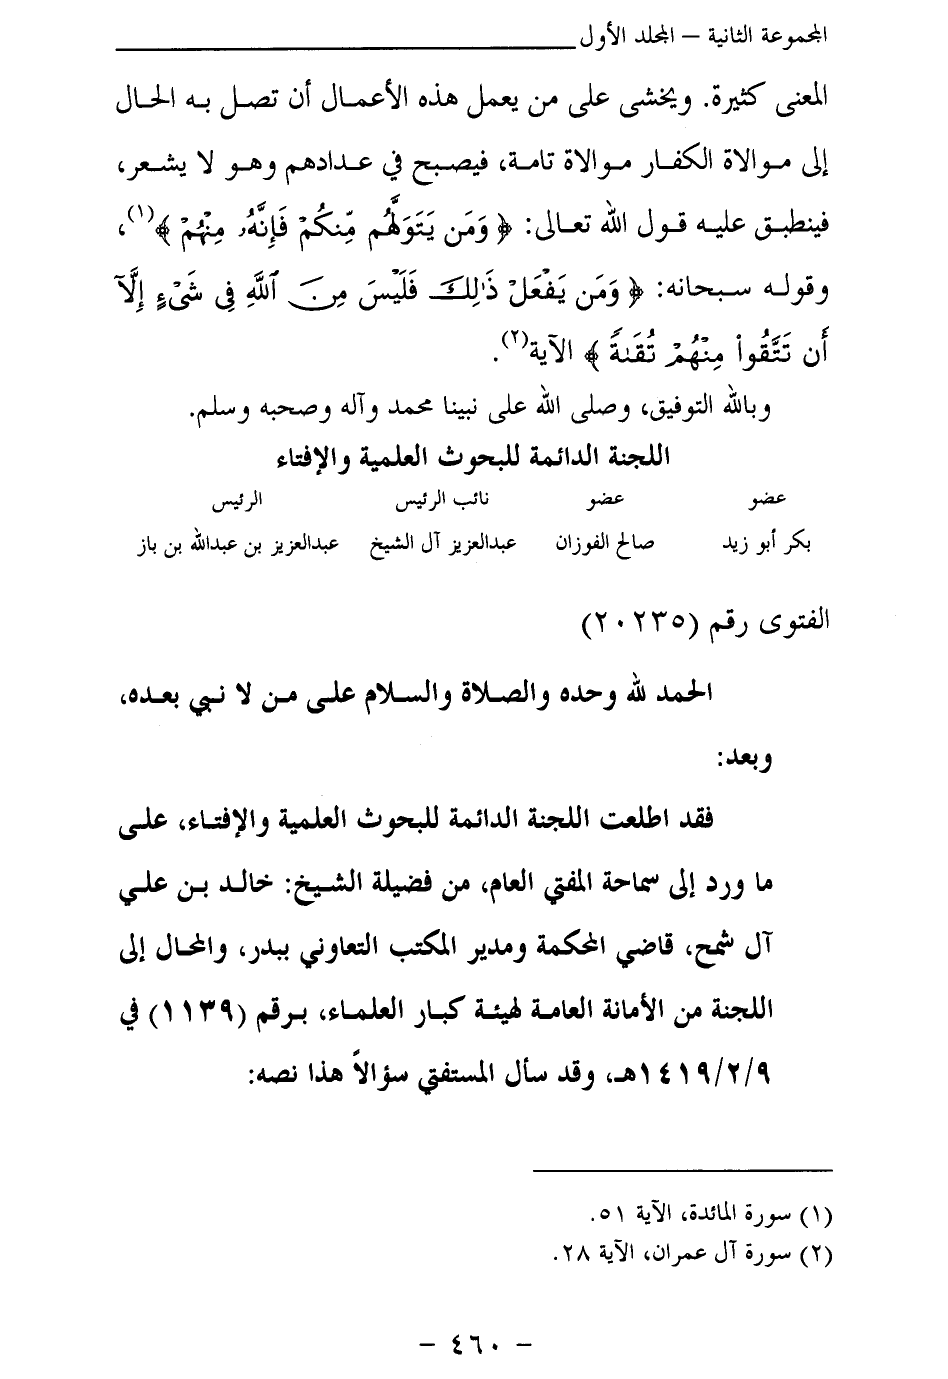 المجموعة الثانية – المجلد الأول
المعنى كثيرة. ويخشى على من يعمل هذه الأعمال أن تصل به الحال
إلى موالاة الكفار موالاة تامة، فيصبح في عدادهم وهو لا يشعر،
فينطبق عليه قول الله تعالى: ﴿ وَمَن يَتَوَلَّهُم مِّنكُمْ فَإِنَّهُۥ مِنْهُمْ ﴾(١)،
وقوله سبحانه: ﴿ وَمَن يَفْعَلْ ذَٰلِكَ فَلَيْسَ مِنَ ٱللَّهِ فِى شَىْءٍ إِلَّآ
أَن تَتَّقُوا۟ مِنْهُمْ تُقَىٰةً ﴾ الآية(٢).
وبالله التوفيق، وصلى الله على نبينا محمد وآله وصحبه وسلم.
اللجنة الدائمة للبحوث العلمية والإفتاء
عضو عضو نائب الرئيس الرئيس
بكر أبو زيد صالح الفوزان عبدالعزيز آل الشيخ عبدالعزيز بن عبدالله بن باز
الفتوى رقم (٢٠٢٣٥)
الحمد لله وحده والصلاة والسلام على من لا نبي بعده،
وبعد:
فقد اطلعت اللجنة الدائمة للبحوث العلمية والإفتاء، على
ما ورد إلى سماحة المفتي العام، من فضيلة الشيخ: خالد بن علي
آل شمح، قاضي المحكمة ومدير المكتب التعاوني ببدر، والمحال إلى
اللجنة من الأمانة العامة لهيئة كبار العلماء، برقم (١١٣٩) في
١٤١٩/٢/٩هـ، وقد سأل المستفتي سؤالاً هذا نصه:
(١) سورة المائدة، الآية ٥١.
(٢) سورة آل عمران، الآية ٢٨.
– ٤٦٠ –